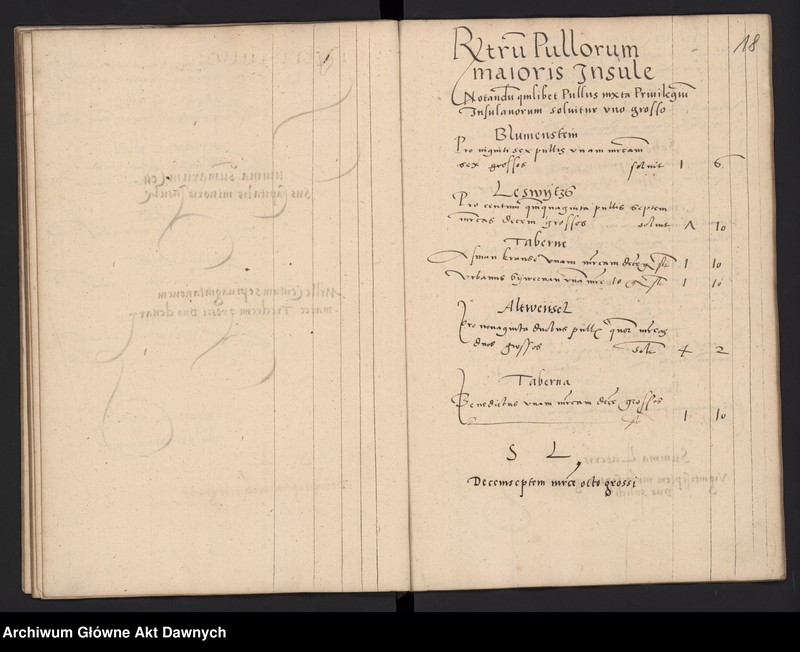 18
Rtrũ Pullorum
maioris Insule
Notandũ qͥlibet Pullus iuxta Privilegiũ
Insulanorum soluitur vno grosso
Blumenstein
Pro viginti sex pullis vnam mrcam
sex grossos soluit 1 6
Leswytz
Pro centum quinquaginta pullis septem
mrcas decem grossos soluit Λ 10
Taberne
Asman krause vnam mrcam decẽ gr 1 10
Urbanus vnã mrc 10 gr 1 10
Altwensel
Pro nonaginta duobus pull quor mrcas
duos grossos solt 4 2
Taberna
Benedictus vnam mrcam decẽ grossos
1 10
S L
Decemseptem mrce octo grossi
Archiwum Główne Akt Dawnych